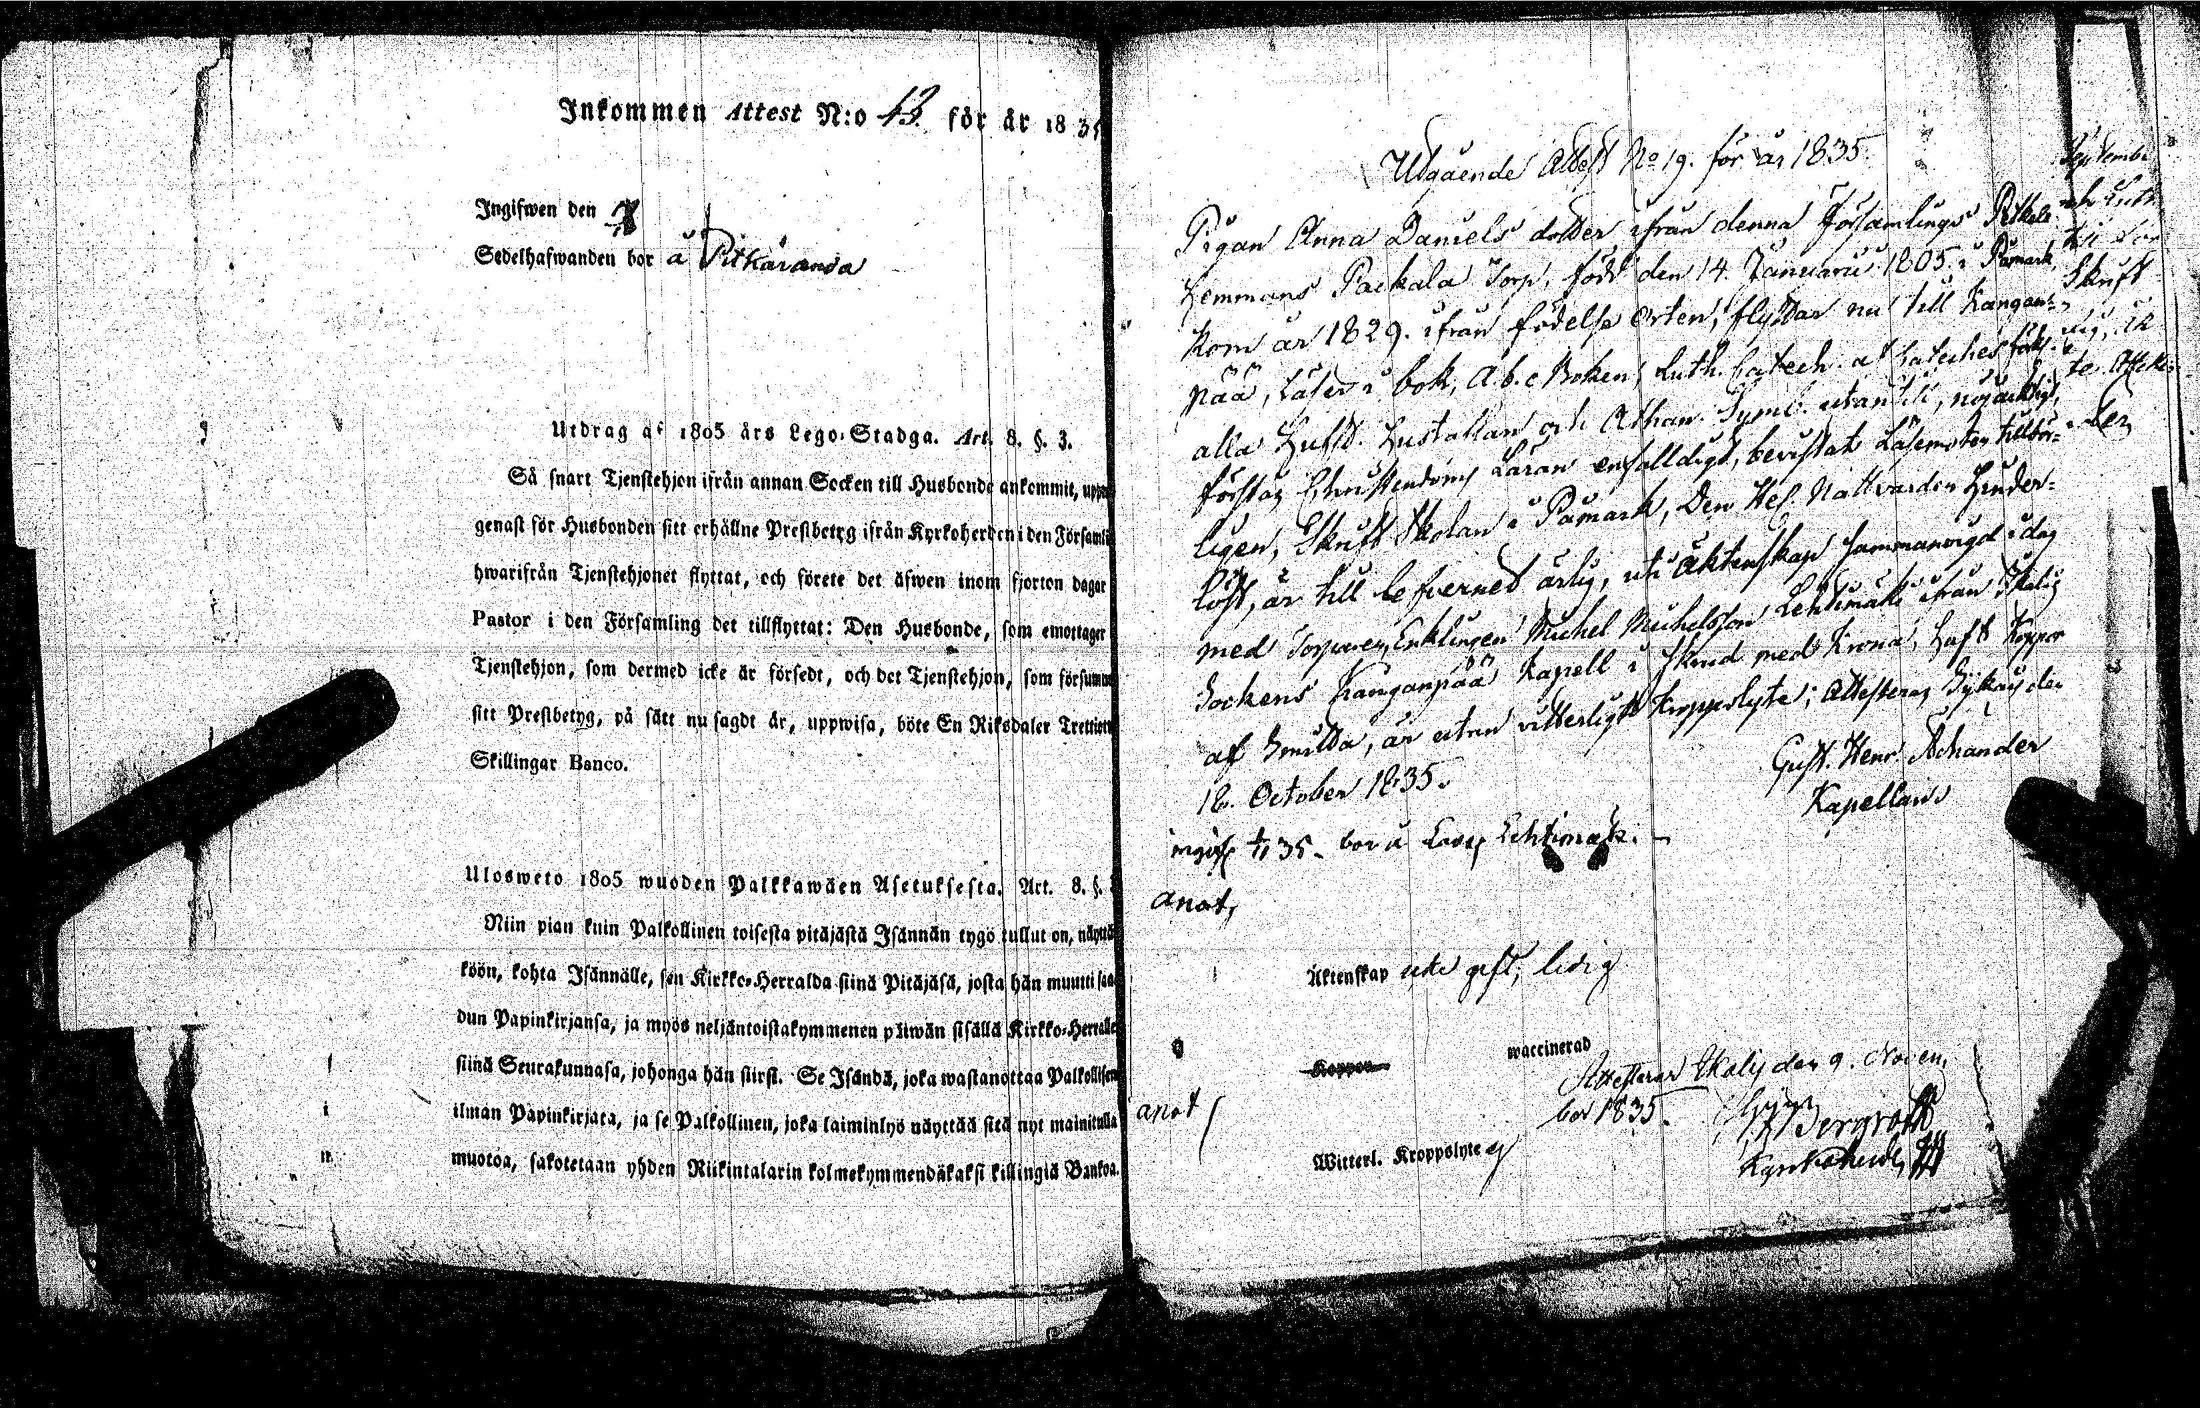 Inkommen Attest N:o 43. för år 1835
Ingifwen den
Sedelhafwanden bor å Pitkäranda
Utdrag af 1805 års Lego-Stadga. Art. 8. §. 3.
Så snart Tjenstehjon ifrån annan Socken till Husbonde ankommit, upp
genast för Husbonden sitt erhållne Prestbetyg ifrån Kyrkoherden i den Församli
hwarifrån Tjenstehjonet flyttat, och förete det äfwen inom fjorton dagar
Pastor i den Församling det tillflyttat: Den Husbonde, som emottager
Tjenstehjon, som dermed icke är försedt, och det Tjenstehjon, som försumm
sitt Prestbetyg, på sätt nu sagdt är, uppwisa, böte En Riksdaler Trettiotw
Skillingar Banco.
Ulosweto 1805 wuoden Palkkawäen Asetuksesta. Art. 8. §.
Niin pian kuin Palkollinen toisesta pitäjästä Isännän tygö tullut on, näyttä
köön, kohta Isännälle, sen Kirkko-Herralda siinä Pitäjäsä, josta hän muutti saa
dun Papinkirjansa, ja myös neljäntoistakymmenen päiwän sisällä Kirkko-Herralle
siinä Seurakunnasa, johonga hän siirst. Se Isändä, joka wastanottaa Palkollisen
ilman Papinkirjata, ja se Palkollinen, joka laiminlyö näyttää sitä nyt mainitulla
muotoa, sakotetaan yhden Riikintalarin kolmekymmendäkaksi killingiä Bankoa.
Utgående Attest No 19. för år 1835.
Pigan Anna Daniels dotter ifrån denna Församlings
Hemmans Packala Torp, född den 14. Januarii 1805 i Påmark,
kom år 1829. ifrån födelse orten, flyttar nu till Kangan-
pää, Läser i bok, A.b.c Boken, Luth. Catech.
alla Hufst. Hustaflan och Athan. Symb. utantill, nöjaktigt,
förstår Christendoms Läran enfalldigt, bevistat Läsemöten tillbör-
ligen, Skrift Skolan i Påmark, Den Hel. Nattvarden Hinder-
löst, är till lefvernet ärlig, uti äktenskap sammanvigd i dag
med Torparen Enklingen Michel Michelsson Lehtimäki ifrån Ikalis
Sockens Kanganpää Kapell i skrud med Krona, Haft Koppor
af Smitta, är utan vitterligt kroppslyte; Attesteras Sykaus den
18. October 1835.
Gust. Henr. Achander
Kapellan
ingif 35. bor å Lehtimäki.
anot,
Äktenskap icke gift, ledig
Koppor
waccinerad
Attesterar Ikalis den 9. Novem
ber 1835.
Bergroth
Kyrkoherde
anot
Witterl. Kroppslyte ej
Septemb
och Luth
Skrift